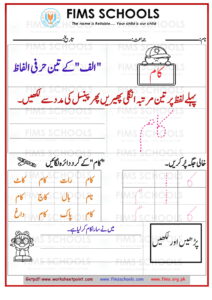 FIMS SCHOOLS
The name is Reliable.... Your child is our child
نام: جماعت: تاریخ:
"الف" کے تین حرفی الفاظ
کام
پہلے لفظ پر تین مرتبہ انگلی پھیریں پھر پینسل کی مدد سے لکھیں۔
خالی جگہ پُر کریں۔
"کام" کے گرد دائرہ لگائیں
کام رات کام کاٹ
نام بال کاج کام
کام پاک کام داغ
میں نے سارا کام کر لیا ہے۔
پڑھیں اور لکھیں
Getpdf www.worksheetpoint.com www.fimsschools.com www.fims.org.pk